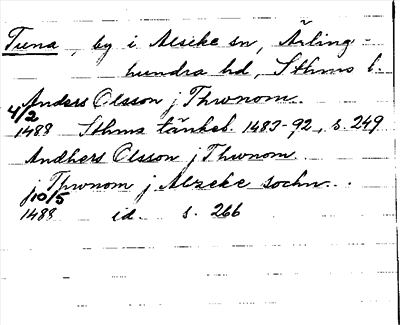 Tuna, by i Alseke sn, Ärling-
hundra hd, Sthms l.
Anders Olsson j Thwnom.
4/2
1488 Sthms tänkeb. 1483-92, s. 249
Andhers Olsson j Thwnom
j Thwnom j Alzeke sochn.
10/5
1488 id. s. 266